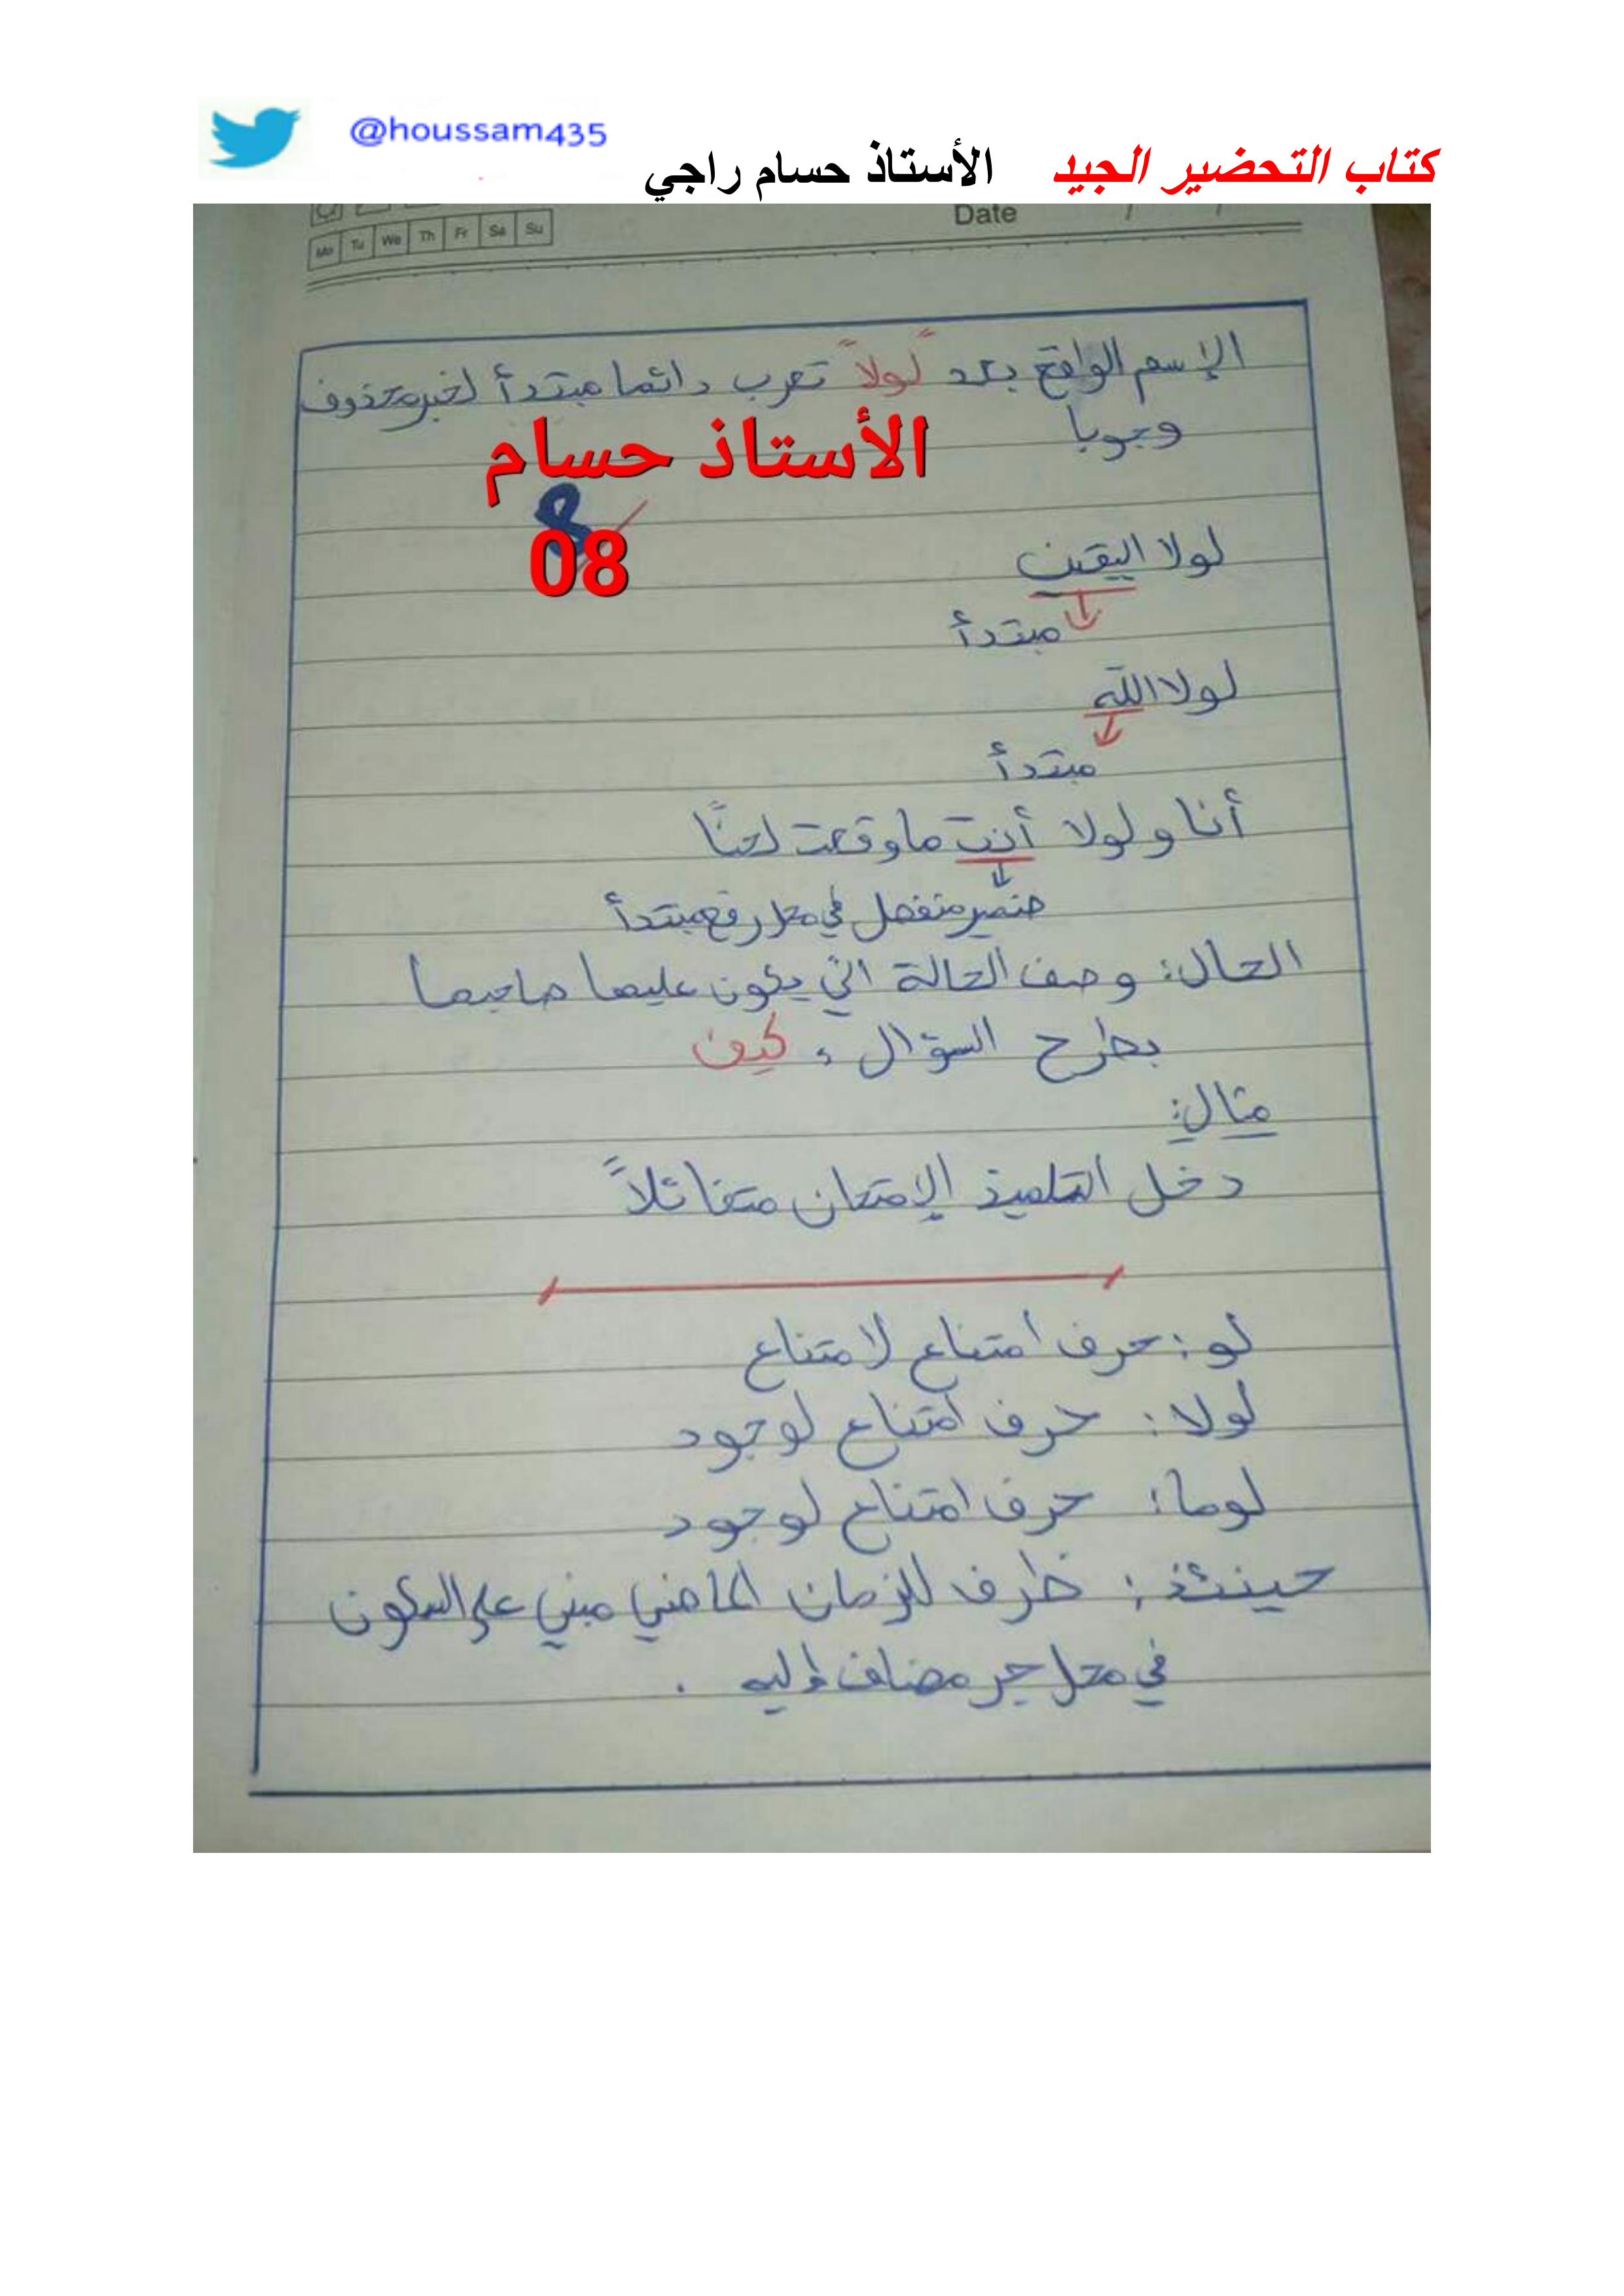 @houssam435
كتاب التحضير الجيد الأستاذ حسام راجي
Date / /
Mo Tu We Th Fr Sa Su
الإسم الواقع بعد "لولا" تعرب دائما مبتدأ لخبر محذوف
وجوبا
الأستاذ حسام
8
08
لولا اليقين
مبتدأ
لولا الله
مبتدأ
أنا و لولا أنت ما وقعت لحنًا
ضمير منفصل في محل رفع مبتدأ
الحال: وصف الحالة التي يكون عليها صاحبها
بطرح السؤال : كيف
مثال:
دخل التلميذ الإمتحان متفائلاً
لو : حرف امتناع لامتناع
لولا : حرف امتناع لوجود
لوما : حرف امتناع لوجود
حينئذ : ظرف للزمان الماضي مبني على السكون
في محل جر مضاف إليه .